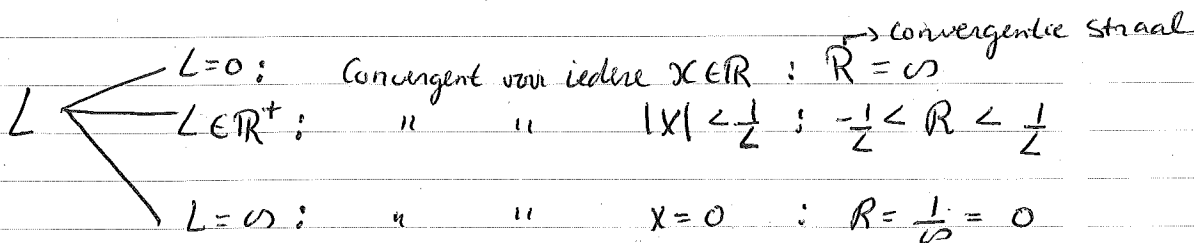 → convergentie straal
L=0 : Convergent voor iedere x∈ℝ : R = ∞
L L∈ℝ⁺ : " " |x| < 1/L ; -1/L < R < 1/L
L=∞ : " " x=0 : R = 1/∞ = 0